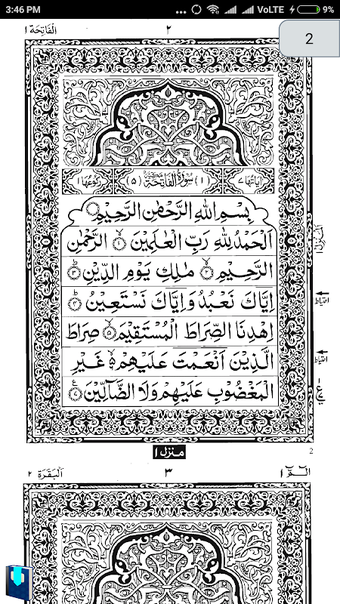 3:46 PM ... VoLTE 9%
2
اَلْفَاتِحَة ١
٢
اٰيَاتُهَا ٧ (١) سُوْرَةُ الْفَاتِحَةِ (٥) رُكُوْعُهَا ١
بِسْمِ اللّٰهِ الرَّحْمٰنِ الرَّحِيْمِ
اَلْحَمْدُ لِلّٰهِ رَبِّ الْعٰلَمِيْنَ ۙ﴿١﴾ الرَّحْمٰنِ
الرَّحِيْمِ ۙ﴿٢﴾ مٰلِكِ يَوْمِ الدِّيْنِ ؕ﴿٣﴾
اِيَّاكَ نَعْبُدُ وَاِيَّاكَ نَسْتَعِيْنُ ؕ﴿٤﴾
اِهْدِنَا الصِّرَاطَ الْمُسْتَقِيْمَ ۙ﴿٥﴾ صِرَاطَ
الَّذِيْنَ اَنْعَمْتَ عَلَيْهِمْ ۙ﴿٦﴾ غَيْرِ
الْمَغْضُوْبِ عَلَيْهِمْ وَلَا الضَّآلِّيْنَ ﴿٧﴾
منزل ١
2
اَلْبَقَرَة ٢
٣
الٓمّٓ ١